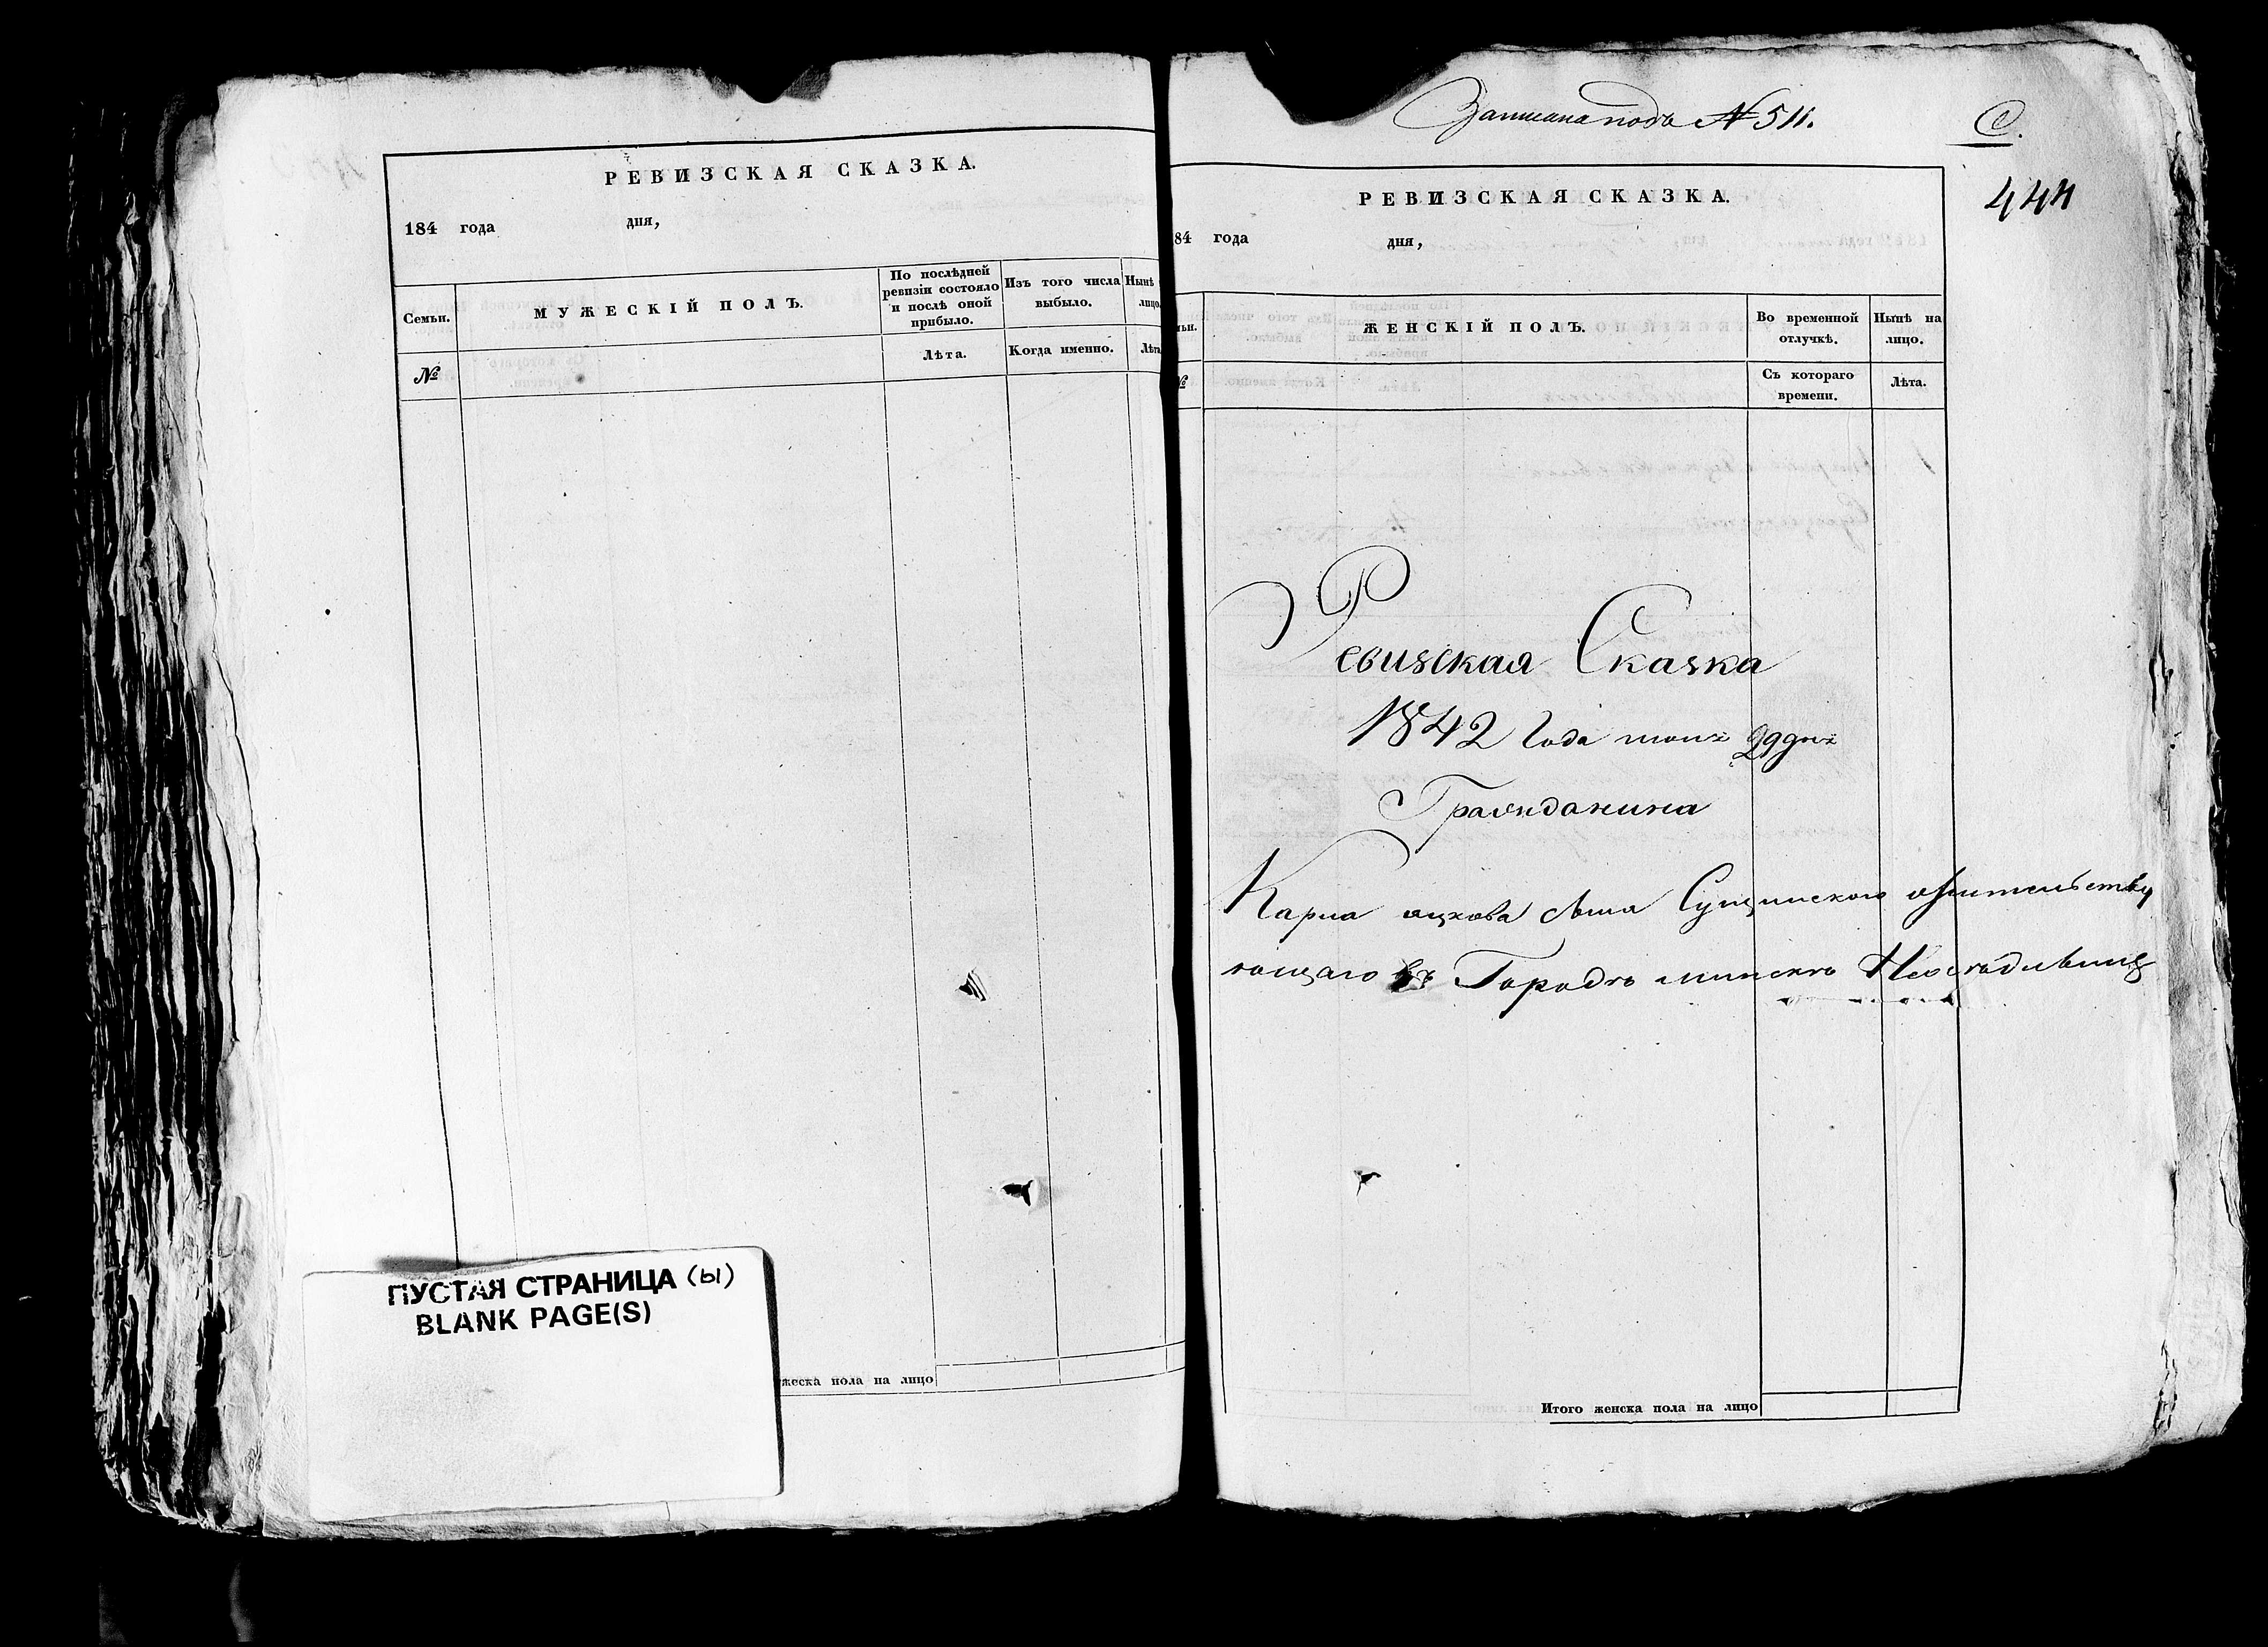 РЕВИЗСКАЯ СКАЗКА.
184 года дня,
Семьи.
МУЖЕСКІЙ ПОЛЪ.
По послѣдней
ревизіи состояло
и послѣ оной
прибыло.
Изъ того числа
выбыло.
Нынѣ
лицо
№
Лѣта.
Когда именно.
Лѣта
жеска пола на лицо
ПУСТАЯ СТРАНИЦА (ы)
BLANK PAGE(S)
Записана подъ № 511.
С.
444
РЕВИЗСКАЯ СКАЗКА.
84 года дня,
ьи.
ЖЕНСКІЙ ПОЛЪ.
Во временной
отлучкѣ.
Нынѣ на
лицо.
№
Съ котораго
времени.
Лѣта.
Ревизская Сказка
1842 Года 29 дня
Гражданина
Карпа сына Сущинского жительству
ющаго въ Городѣ минскѣ
Итого женска пола на лицо